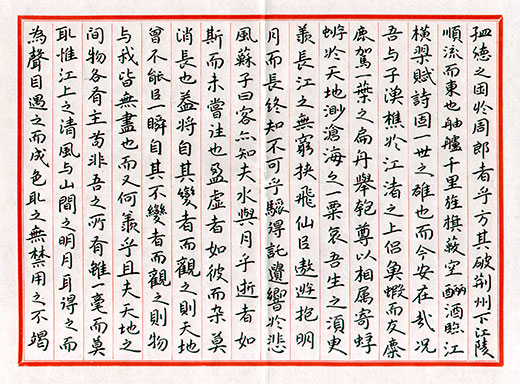 孟德之困於周郎者乎方其破荊州下江陵
順流而東也舳艫千里旌旗蔽空釃酒臨江
橫槊賦詩固一世之雄也而今安在哉況
吾与子漁樵於江渚之上侶魚蝦而友麋
鹿駕一葉之扁舟舉匏尊以相属寄蜉
蝣於天地渺滄海之一粟哀吾生之須臾
羨長江之無窮挾飛仙以遨遊抱明
月而長終知不可乎驟得託遺響於悲
風蘇子曰客亦知夫水與月乎逝者如
斯而未嘗往也盈虛者如彼而卒莫
消長也蓋將自其變者而觀之則天地
曾不能以一瞬自其不變者而觀之則物
与我皆無盡也而又何羨乎且夫天地之
間物各有主苟非吾之所有雖一毫而莫
取惟江上之清風与山間之明月耳得之而
為聲目遇之而成色取之無禁用之不竭